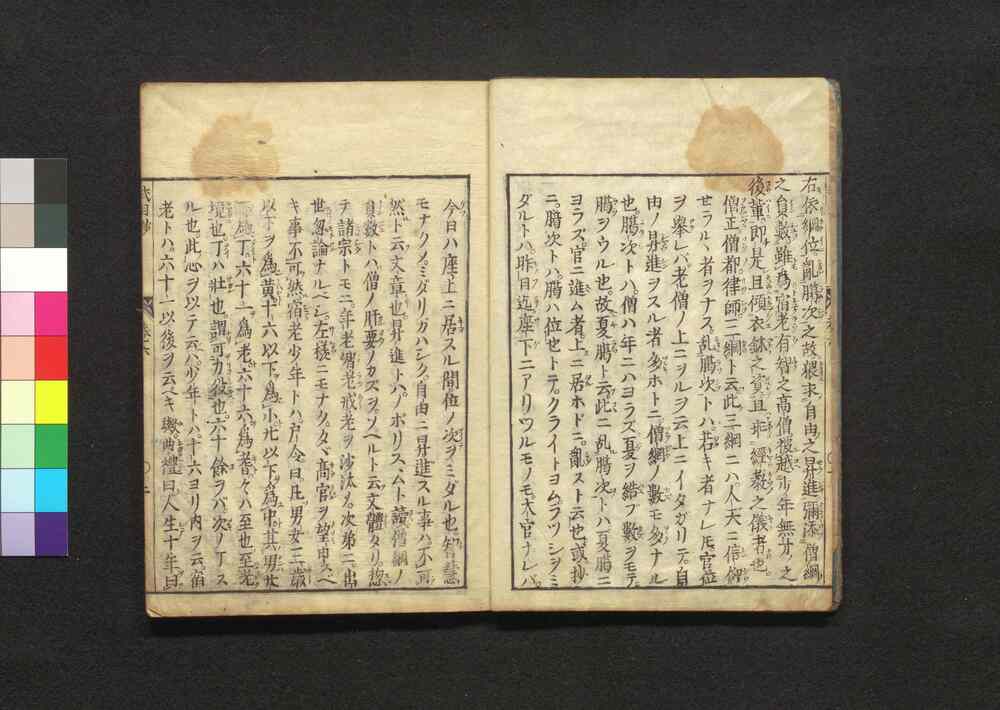 右依綱位亂臈次之故猥求自由之昇進彌添僧綱
之員數雖為宿老有智之高僧被越少年無才之
後輩即是且傾衣鉢之資且乖經教之儀者也
僧正僧都律師三綱ト云此三綱ニハ人天ニ信仰
セラルヽ者ヲナス乱臈次トハ若キ者ナレ𪜈官位
ヲ擧レバ老僧ノ上ニヲルヲ云上ニイタガリテ自
由ノ昇進ヲスル者多ホトニ僧綱ノ數モ多ナル
也臈次トハ僧ハ年ニハヨラズ夏ヲ結ブ數ヲモテ
臈ヲウル也故夏臈ト云此ニ乱臈次トハ夏臈ニ
ヨラズ官ニ進ム者上ニ居ホドニ亂スト云也或抄
ニ臈次トハ臈ハ位也トテクライトヨムラツシヲミ
ダルトハ昨日迄座下ニアリツルモノモ大官ナレバ
今日ハ座上ニ居スル間位ノ次ヲミダル也智慧
モナクノミダリガハシク自由ニ昇進スル事ハ不可
然ト云文章也昇進トハノボリスヽムト讀僧綱ノ
員數トハ僧ノ肝要ノカズヲソヘルト云文體タリ惣
テ諸宗トモニ年老智老戒老ヲ沙汰ノ次第ニ出
世勿論ナルベシ左樣ニモナクタヾ高官ヲ望申スベ
キ事不可然宿老少年トハ戸令曰凡男女三歳
以下ヲ為黄十六以下為小廿以下為中其男廿
一為丁六十一為老六十六為耆々ハ至也至老
境也丁ハ壯也謂可力役也六十餘ヲバ次ノ丁ス
ル也此心ヲ以テ云ハ少年トハ十六ヨリ内ヲ云宿
老トハ六十一以後ヲ云ベキ歟曲禮曰人生十年曰